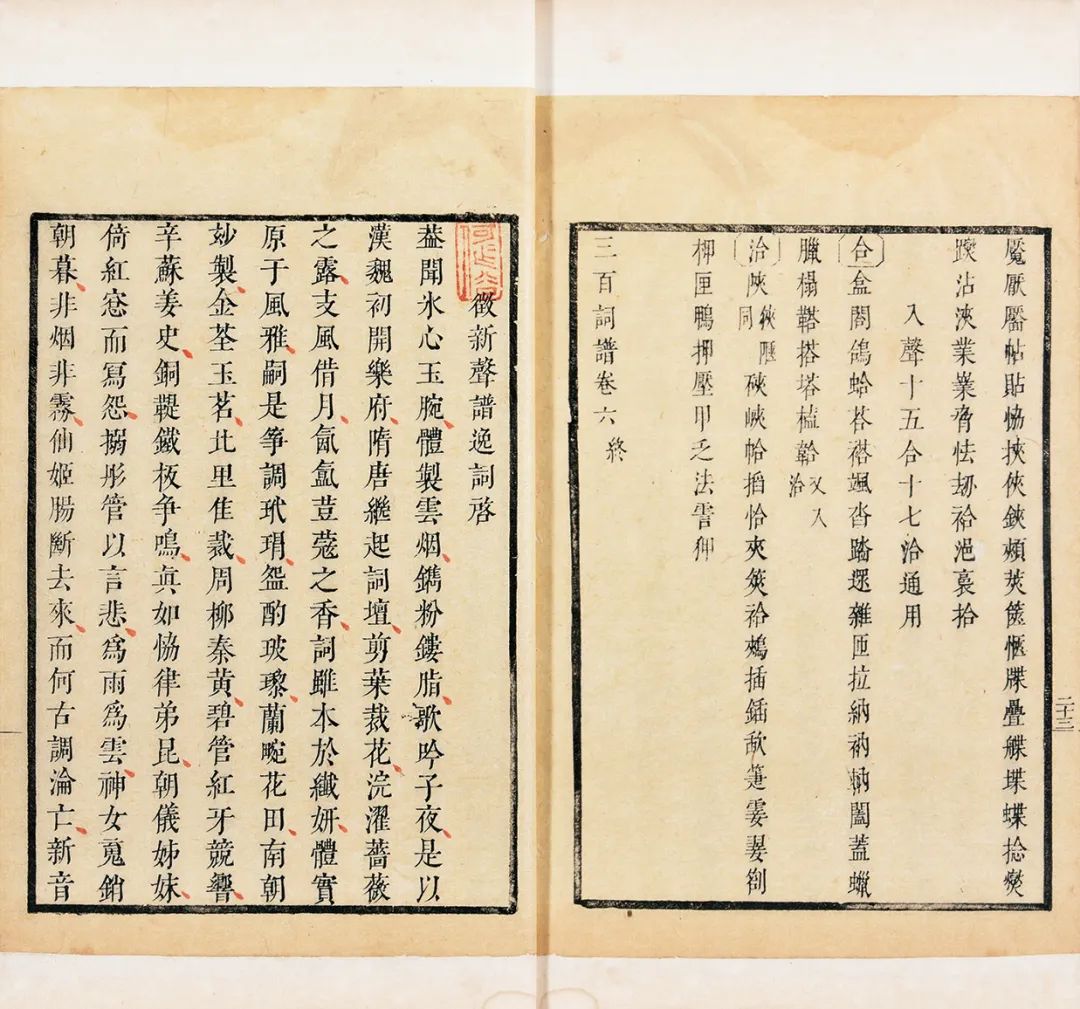 魘厭靨帖貼恊挾俠鋏頰莢篋愜牒疊艓堞蝶捻爕
躞沾浹業嶪脅怯刼袷浥裛拾
入聲十五合十七洽通用
合盒閤鴿蛤荅褡颯沓踏遝雜匝拉納衲軜闔蓋蠟
臘榻鞳搭塔榼韐又入洽
洽陜狹同匧硤峽帢搯恰夾筴袷鵊插鍤歃箑霎翣劄
柙匣鴨押壓甲乏法霅𠇾
三百詞譜卷六終
二十三
徵新聲譜逸詞啓
葢聞氷心玉腕體製雲烟鐫粉鏤脂歌吟子夜是以
漢魏初開樂府隋唐繼起詞壇剪葉裁花浣濯薔薇
之露支風借月氤氳荳蔻之香詞雖本於纖妍體實
原于風雅嗣是箏調玳瑁盌酌玻瓈蘭畹花田南朝
玅製金荃玉茗北里隹裁周柳秦黄碧管紅牙競響
辛蘇姜史銅鞮鐵板争鳴真如恊律弟昆朝儀姊妹
倚紅窓而冩怨搦彤管以言悲爲雨爲雲神女䰟銷
朝暮非烟非霧仙姬腸斷去來而何古調淪亡新音